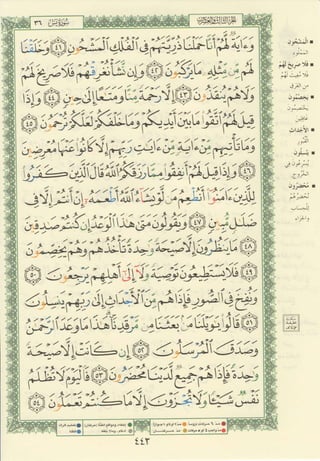 الجزء الثالث والعشرون
سورة يس ٣٦
وَءَايَةٌ لَّهُمْ أَنَّا حَمَلْنَا ذُرِّيَّتَهُمْ فِي الْفُلْكِ الْمَشْحُونِ ٤١ وَخَلَقْنَا
لَهُم مِّن مِّثْلِهِ مَا يَرْكَبُونَ ٤٢ وَإِن نَّشَأْ نُغْرِقْهُمْ فَلَا صَرِيخَ لَهُمْ
وَلَا هُمْ يُنقَذُونَ ٤٣ إِلَّا رَحْمَةً مِّنَّا وَمَتَاعًا إِلَىٰ حِينٍ ٤٤ وَإِذَا
قِيلَ لَهُمُ اتَّقُوا مَا بَيْنَ أَيْدِيكُمْ وَمَا خَلْفَكُمْ لَعَلَّكُمْ تُرْحَمُونَ ٤٥
وَمَا تَأْتِيهِم مِّنْ ءَايَةٍ مِّنْ ءَايَاتِ رَبِّهِمْ إِلَّا كَانُوا عَنْهَا مُعْرِضِينَ
٤٦ وَإِذَا قِيلَ لَهُمْ أَنفِقُوا مِمَّا رَزَقَكُمُ اللَّهُ قَالَ الَّذِينَ كَفَرُوا
لِلَّذِينَ ءَامَنُوا أَنُطْعِمُ مَن لَّوْ يَشَاءُ اللَّهُ أَطْعَمَهُ إِنْ أَنتُمْ إِلَّا فِي
ضَلَالٍ مُّبِينٍ ٤٧ وَيَقُولُونَ مَتَىٰ هَٰذَا الْوَعْدُ إِن كُنتُمْ صَادِقِينَ
٤٨ مَا يَنظُرُونَ إِلَّا صَيْحَةً وَاحِدَةً تَأْخُذُهُمْ وَهُمْ يَخِصِّمُونَ
٤٩ فَلَا يَسْتَطِيعُونَ تَوْصِيَةً وَلَا إِلَىٰ أَهْلِهِمْ يَرْجِعُونَ ٥٠
وَنُفِخَ فِي الصُّورِ فَإِذَا هُم مِّنَ الْأَجْدَاثِ إِلَىٰ رَبِّهِمْ يَنسِلُونَ
٥١ قَالُوا يَاوَيْلَنَا مَن بَعَثَنَا مِن مَّرْقَدِنَا هَٰذَا مَا وَعَدَ الرَّحْمَٰنُ
وَصَدَقَ الْمُرْسَلُونَ ٥٢ إِن كَانَتْ إِلَّا صَيْحَةً
وَاحِدَةً فَإِذَا هُمْ جَمِيعٌ لَّدَيْنَا مُحْضَرُونَ ٥٣ فَالْيَوْمَ لَا تُظْلَمُ
نَفْسٌ شَيْئًا وَلَا تُجْزَوْنَ إِلَّا مَا كُنتُمْ تَعْمَلُونَ ٥٤
المشحون
المملوء
فلا صريخ لهم
فلا مغيث لهم
من الغرق
يخصمون
يختصمون
الأجداث
القبور
ينسلون
يسرعون في
الخروج
محضرون
نحضرهم
للحساب
والجزاء
٤٤٣